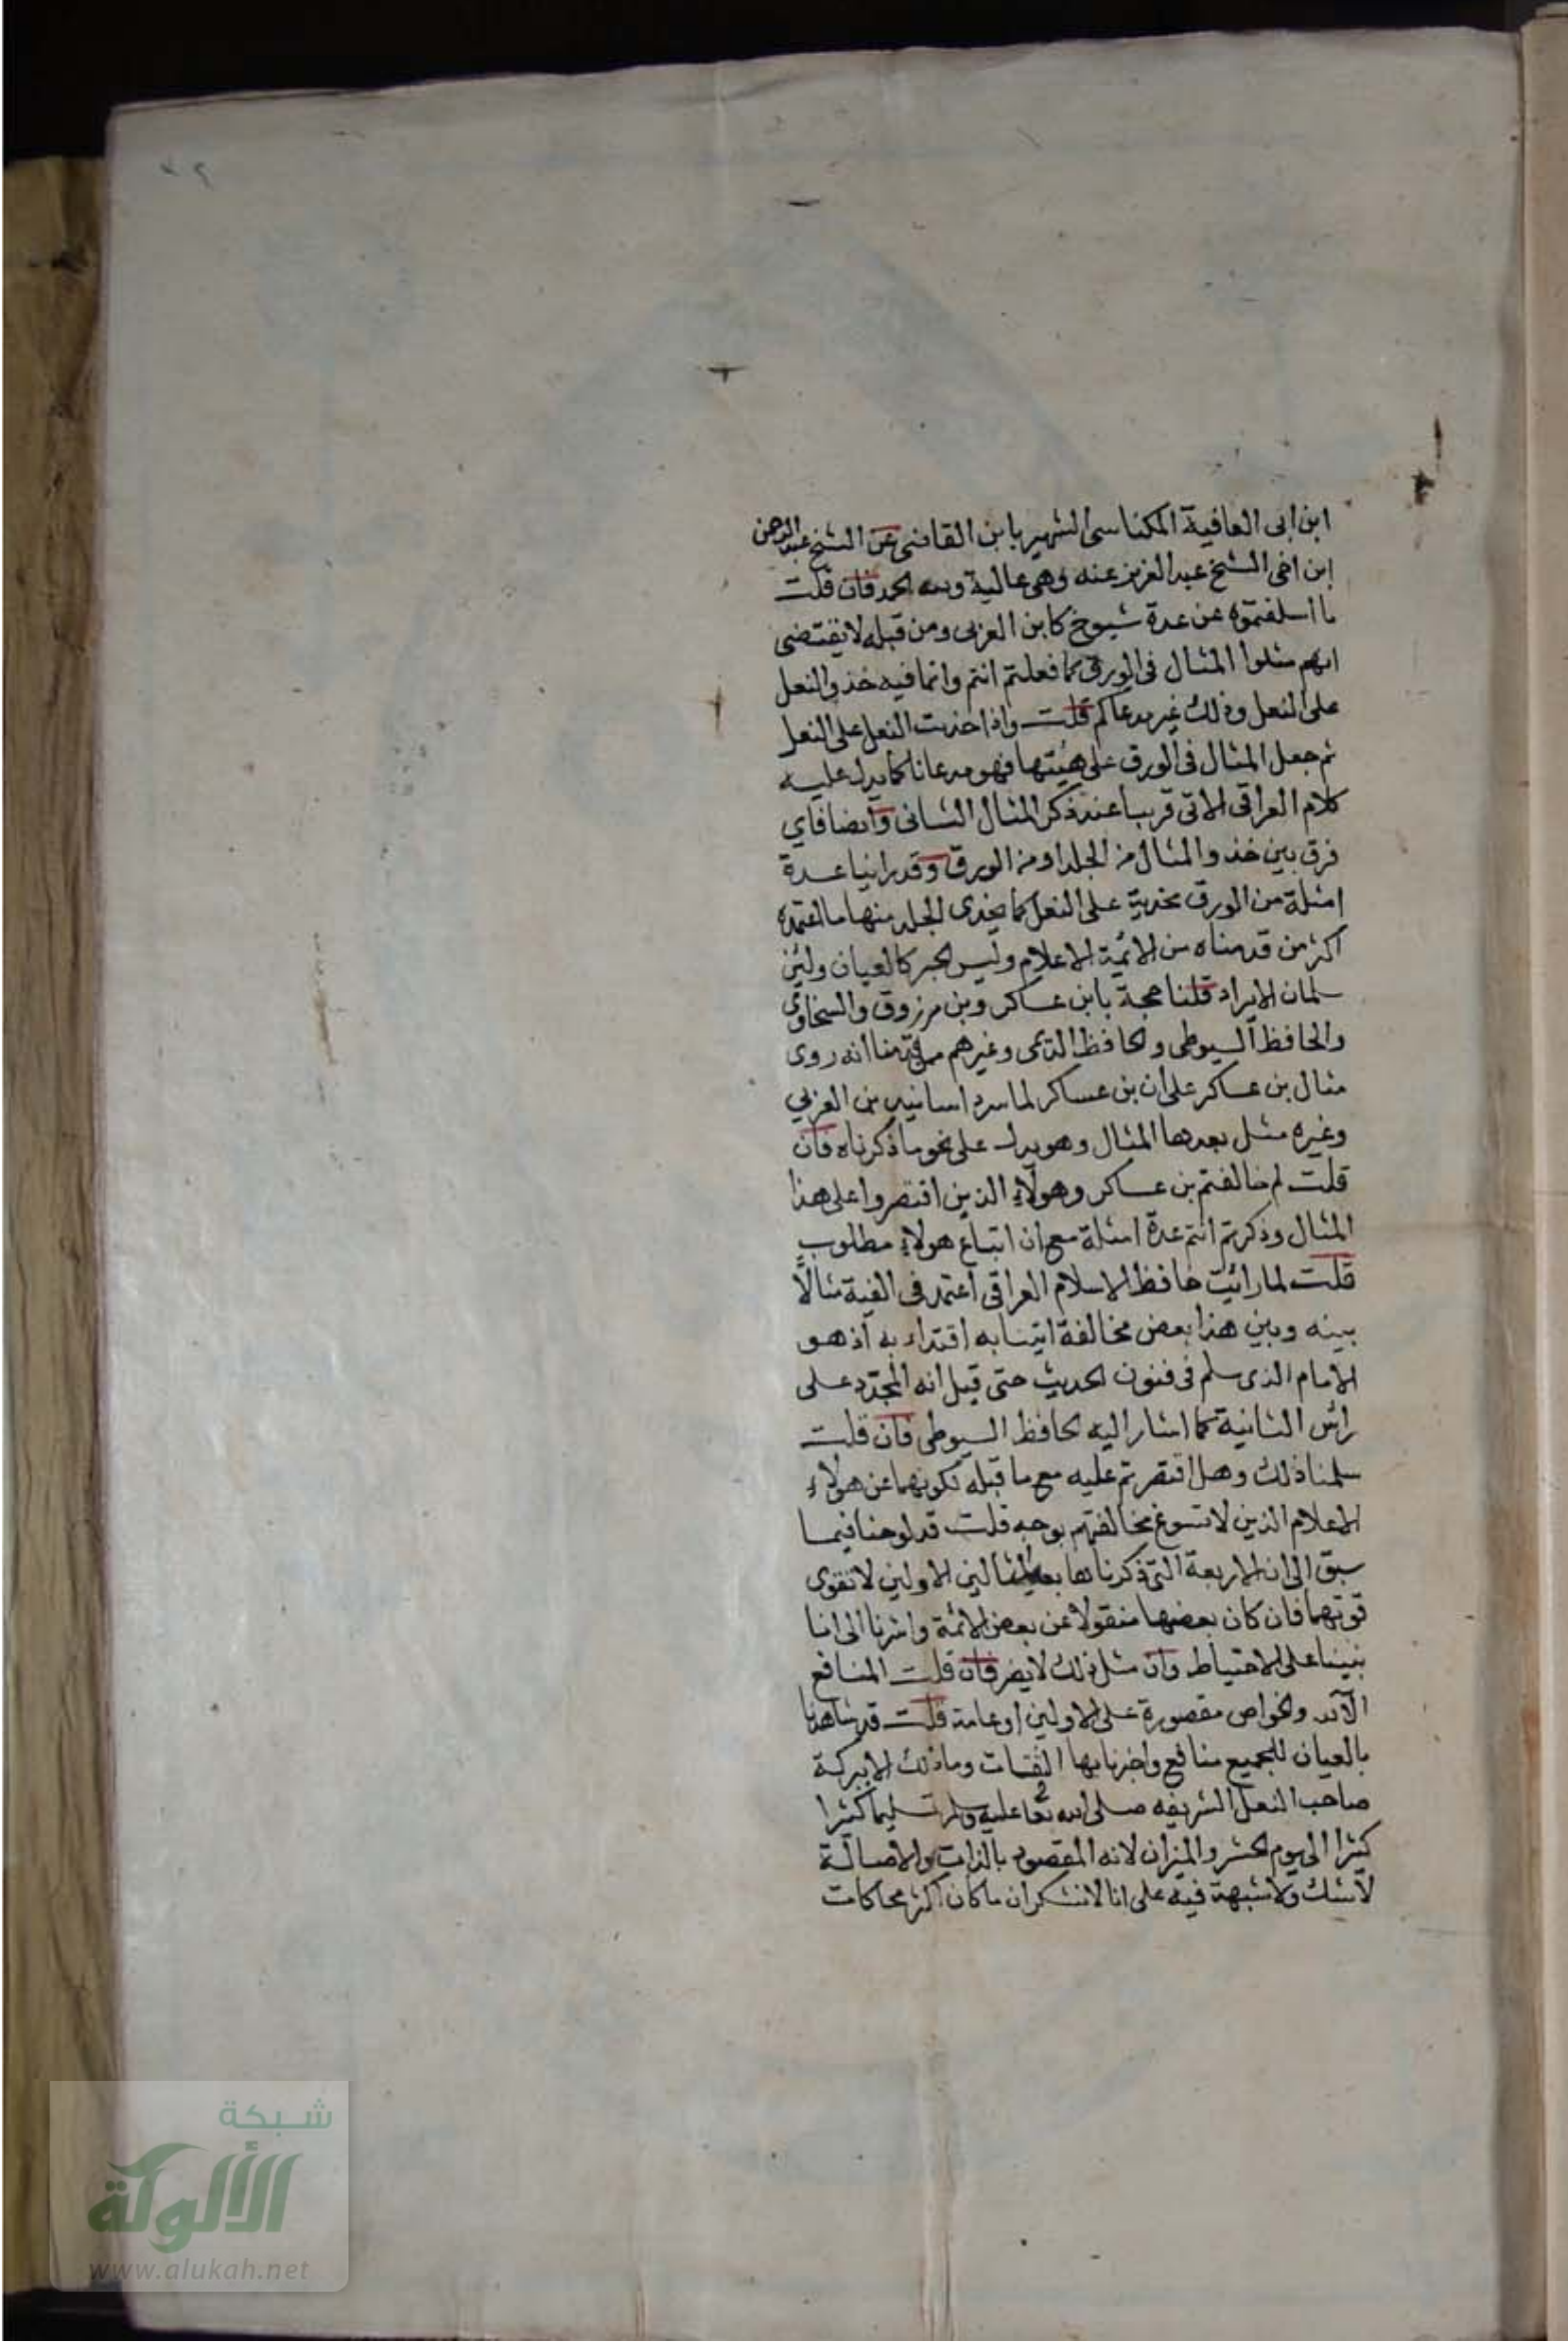 ٣٢
ابن ابى العافية المكناسى الشهير بابن القاضى عن الشيخ عبد الرحمن
ابن اخى الشيخ عبد العزيز عنه وهى عالية ولله الحمد فان قلت
ما اسلفتموه عن عدة شيوخ كابن العربى ومن قبله لا يقتضى
انهم مثلوا المثال فى الورق كما فعلتم انتم وانما فيه حذو النعل
على النعل وذلك غير مدعاكم قلت واذا حذيت النعل على النعل
ثم جعل المثال فى الورق على هيئتها فهو مدعانا كما يدل عليه
كلام العراقى الاتى قريبا عند ذكر المثال الثانى وايضا فاي
فرق بين حذو المثال من الجلد او من الورق وقد راينا عدة
امثلة من الورق محذية على النعل كما يحذى الجلد منها ما اعتمده
اكثر من قدمناه من الائمة الاعلام وليس الخبر كالعيان ولئن
سلمان الايراد قلنا حجة بابن عساكر وبن مرزوق والسخاوى
والحافظ السيوطى والحافظ الديمى وغيرهم ممن قدمنا انه روى
مثال بن عساكر على ان بن عساكر لما سرد اسانيد بن العربي
وغيره مثل بعدها المثال وهو يدل على نحو ما ذكرناه فان
قلت لم خالفتم بن عساكر وهولآء الذين اقتصروا على هذا
المثال وذكرتم انتم عدة امثلة مع ان اتباع هولاء مطلوب
قلت لما رائيت حافظ الاسلام العراقى اعتمد فى الفية مثالاً
بينه وبين هذا بعض مخالفة اتينا به اقتداء به اذ هو
الامام الذى سلم فى فنون الحديث حتى قيل انه المجدّد على
رائس الثانية كما اشار اليه الحافظ السيوطى فان قلت
سلمنا ذلك وهل اقتصرتم عليه مع ما قبله لكونهما عن هولاء
الاعلام الذين لا تسوغ مخالفتهم بوجه قلت قد لوحنا فيما
سبق الى ان الاربعة التى ذكرناها بعد المثالين الاولين لا تقوى
قوتهما فان كان بعضها منقولا عن بعض الائمة واشرنا الى انا
بنينا على الاحتياط وان مثل ذلك لا يضر فان قلت المنافع
والخواص مقصورة على الاولين او عامة قلت قد شاهدنا
بالعيان للجميع منافع واخبرنا بها الثقات وما ذلك الا ببركة
صاحب النعل الشريفه صلى الله تعا عليه وسلم تسليما كثيرا
كثيرا الى يوم الحشر والميزان لانه المقصود بالذات والاصالة
لا شك ولا شبهة فيه على انا لا ننكر ان ما كان اكثر محاكات
شبكة
الألوكة
www.alukah.net